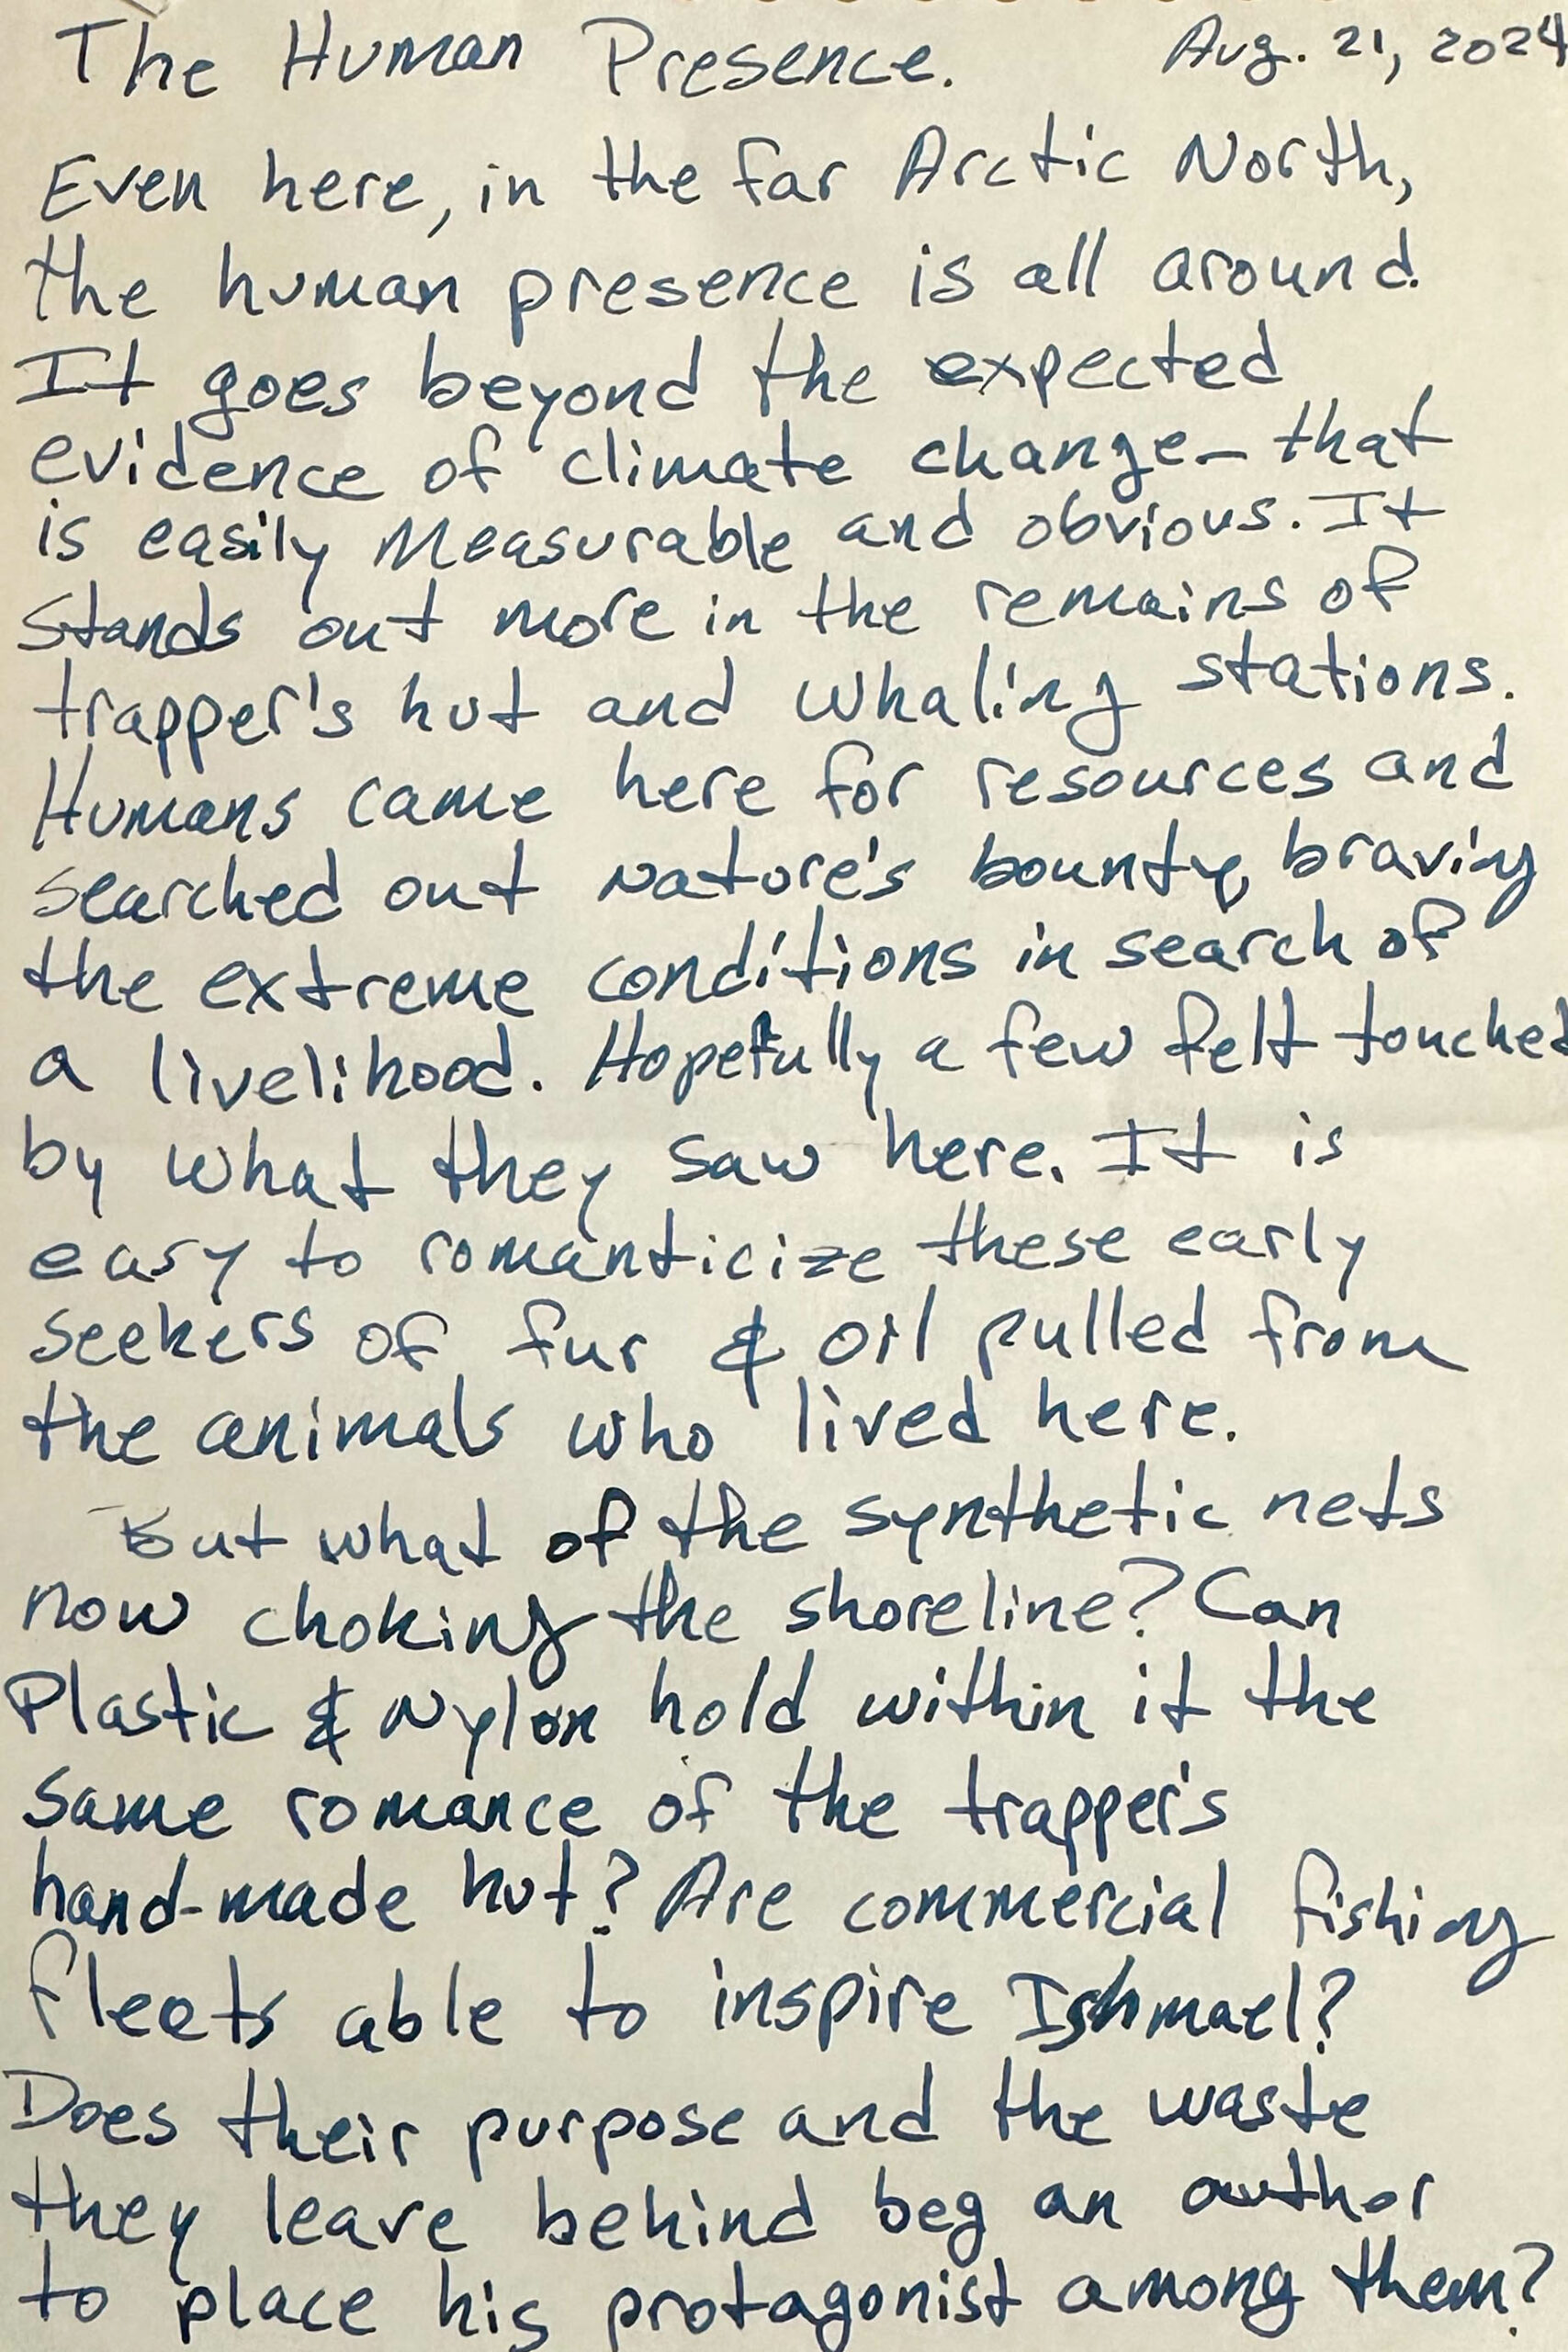 The Human Presence. Aug. 21, 2024
Even here, in the far Arctic North,
the human presence is all around.
It goes beyond the expected
evidence of climate change - that
is easily measurable and obvious. It
stands out more in the remains of
trapper's hut and whaling stations.
Humans came here for resources and
searched out nature's bounty, braving
the extreme conditions in search of
a livelihood. Hopefully a few felt touched
by what they saw here. It is
easy to romanticize these early
seekers of fur & oil pulled from
the animals who lived here.
But what of the synthetic nets
now choking the shoreline? Can
Plastic & Nylon hold within it the
same romance of the trapper's
hand-made hut? Are commercial fishing
fleets able to inspire Ishmael?
Does their purpose and the waste
they leave behind beg an author
to place his protagonist among them?